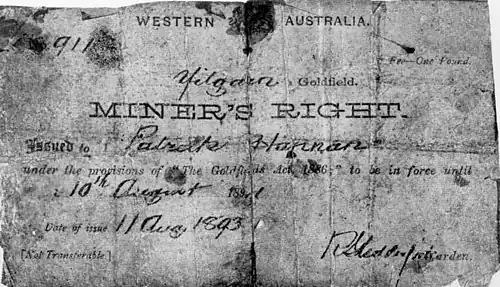 WESTERN AUSTRALIA.
911
Fee—One Pound.
Yilgarn Goldfield.
MINER'S RIGHT.
Issued to Patrick Hannan
under the provisions of "The Goldfields Act, 1886," to be in force until
10th August 189
Date of issue 11 Aug 1893
Warden.
[Not Transferable]